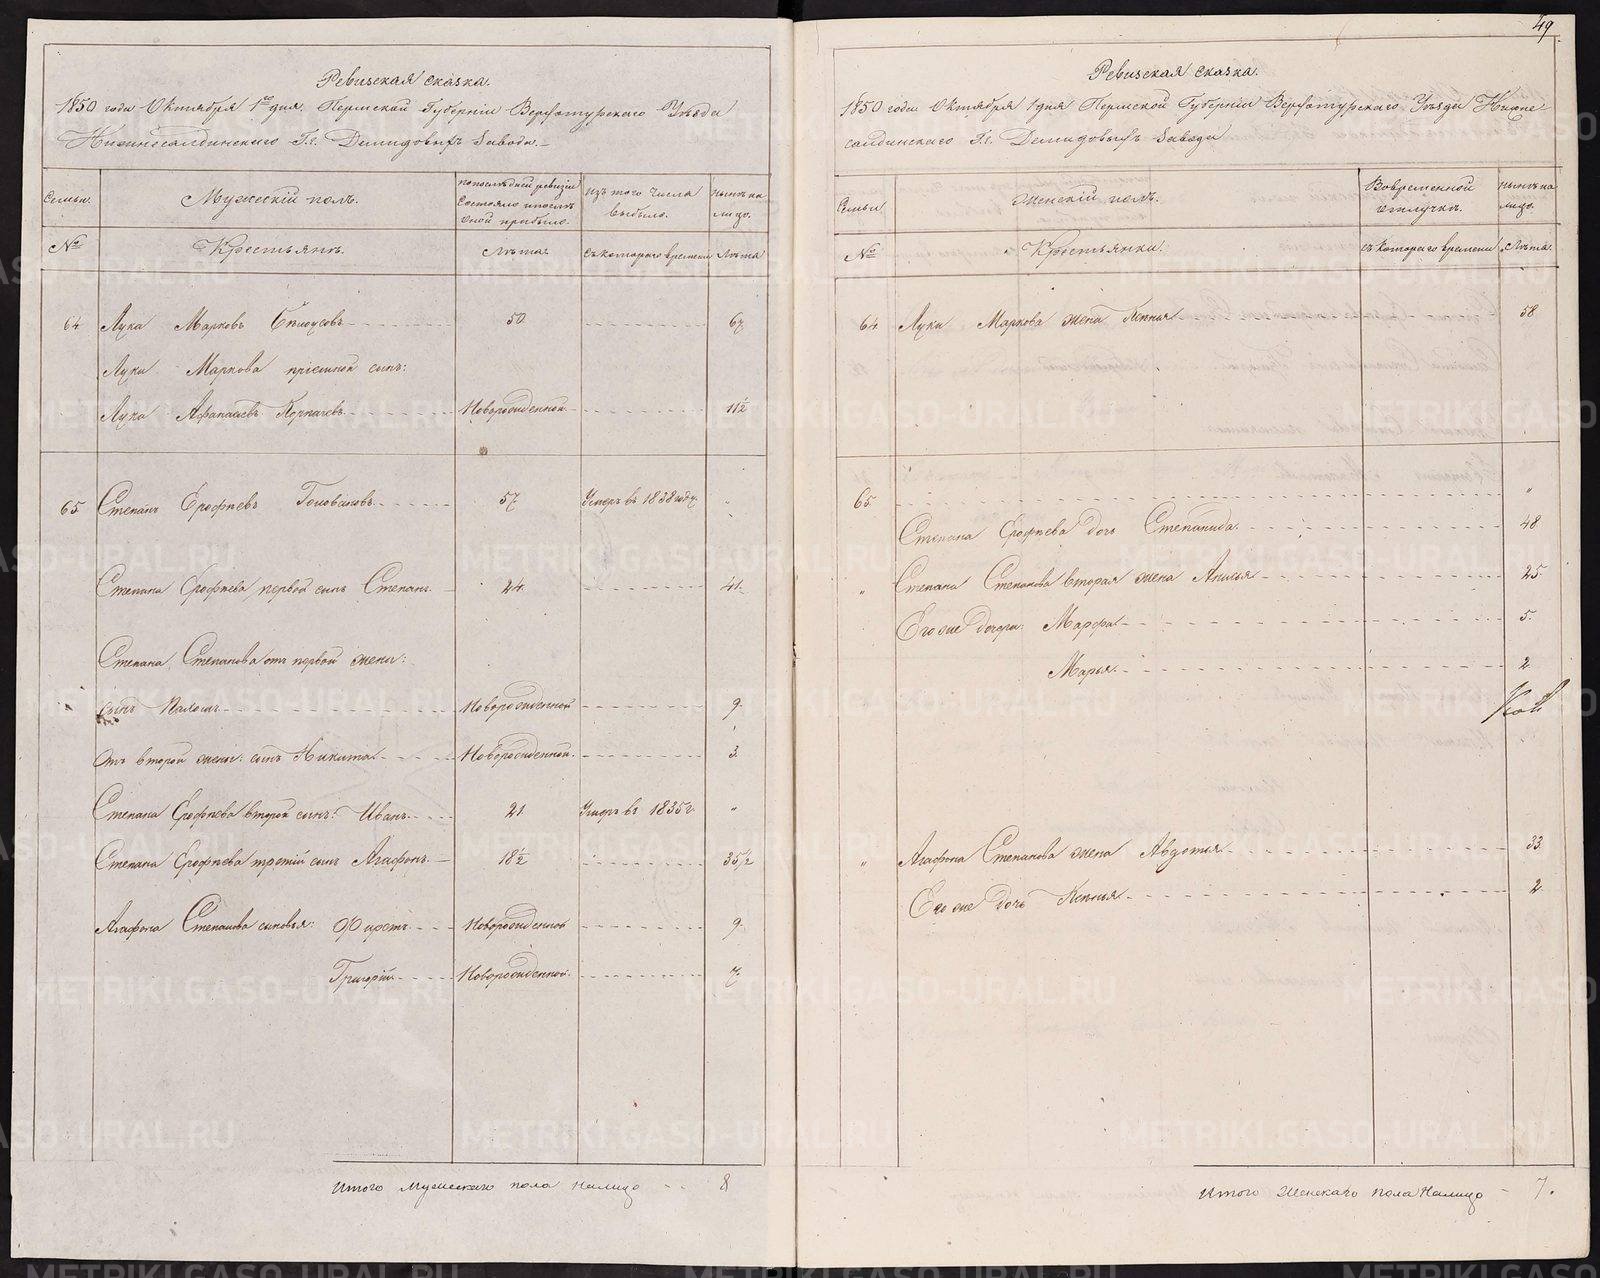 Ревизская сказка.
1850 года Октября 1го дня. Пермской Губерніи Верхотурскаго Уѣзда
Нижнесалдинскаго Г.г. Демидовыхъ Завода.
Семьи. Мужескій полъ. По послѣдней ревизіи состояло и послѣ оной прибыло. Изъ того числа выбыло. Нынѣ на лицо.
№ Крестьянъ. Лѣта. Съ котораго времени Лѣта
64 Лука Марковъ 50 67
Луки Маркова пріемной сынъ:
Лука Афанасьевъ Новорожденной 11½
65 Степанъ Ерофѣевъ Головановъ 57 Умеръ въ 1838 году. "
Степана Ерофѣева первой сынъ Степанъ 24. 41.
Степана Степанова отъ первой жены:
сынъ Новорожденной 9.
Отъ второй жены: сынъ Никита Новорожденной. 3.
Степана Ерофѣева второй сынъ: Иванъ. 21. Умеръ въ 1835 г. "
Степана Ерофѣева третій сынъ Агафонъ. 18½ 35½
Агафона Степанова сыновья: Фирсъ Новорожденной 9.
Григорій Новорожденной. 7.
Итого Мужескаго пола налицо 8
49.
Ревизская сказка.
1850 года Октября 1 дня Пермской Губерніи Верхотурскаго Уѣзда Нижне
салдинскаго Г.г. Демидовыхъ Завода
Семьи Женскій полъ. Во временной отлучкѣ. Нынѣ на лицо.
№ Крестьянки. Съ котораго времени Лѣта.
64. Луки Маркова жена Ксенья 58
65. "
Степана Ерофѣева дочь Степанида. 48
" Степана Степанова вторая жена 25.
Его же дочери: Марфа 5.
Марья 2.
" Агафона Степанова жена Авдотья 33
Его же дочь Ксенья 2.
Итого Женскаго пола Налицо 7.
METRIKI.GASO-URAL.RU